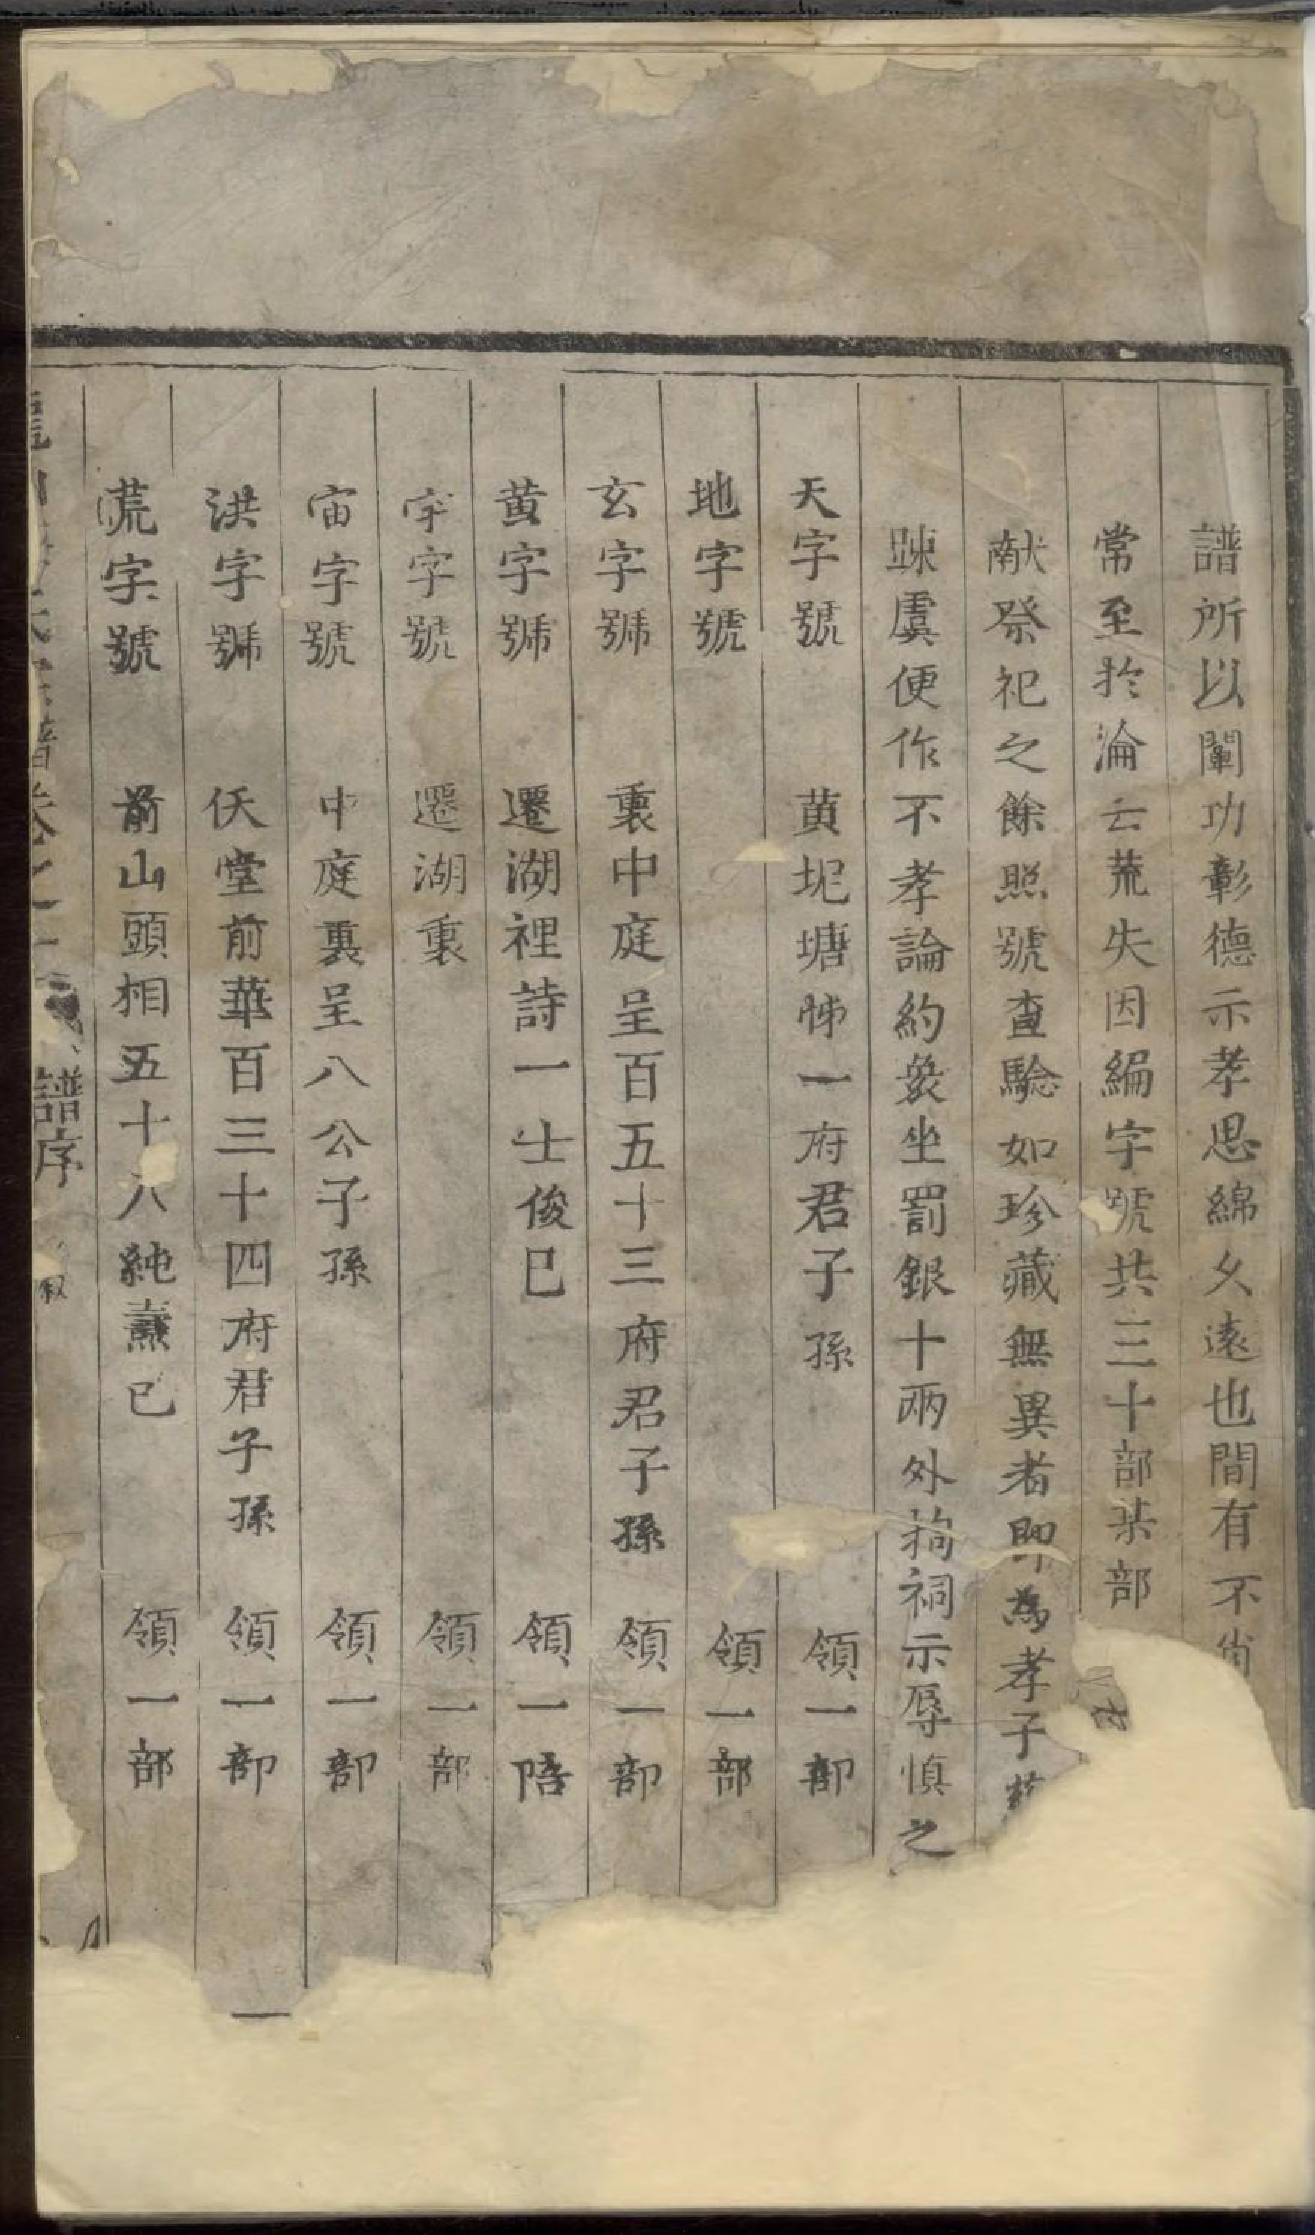 譜所以闡功彰德示孝思綿久遠也間有不肖
常至扵淪亡荒失因編字號共三十部某部
献祭祀之餘照號查騐如珍藏無異者即為孝子
踈虞便作不孝論約衆坐罰銀十兩外拘祠示辱慎之
天字號 黄坭塘悌一府君子孫 領一部
地字號 領一部
玄字號 裏中庭呈百五十三府君子孫 領一部
黄字號 遷湖裡詩一士俊巳 領一部
宇字號 遷湖裏 領一部
宙字號 中庭裏呈八公子孫 領一部
洪字號 仸堂前華百三十四府君子孫 領一部
荒字號 前山頭相五十八純燾已 領一部
譜序